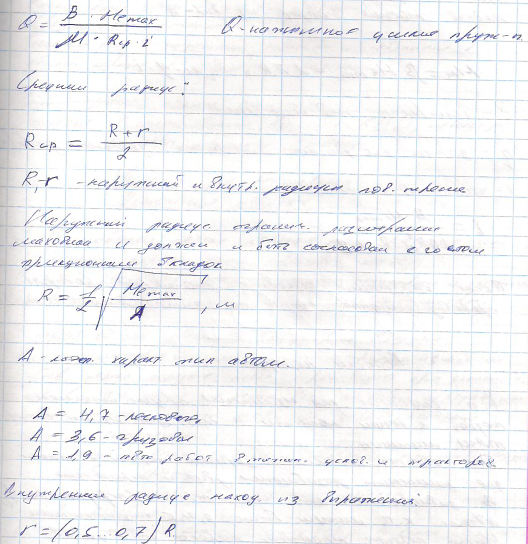 Q = B · Memax / M · Rcp · i    Q - нажимное усилие пруж-н.
Средний радиус:
Rcp = R + r / 2
R, r - наружний и внутр. радиусы пов. трения
Наружний радиус огранич. размерами
маховика и должен и быть согласован с гостом
фрикционных вкладок
R = 1/2 √ Memax / A , м
A - коэф. характ тип автом.
A = 4,7 - легковые,
A = 3,6 - грузовые
A = 1,9 - работ в тяжел. услов. и тракторов.
Внутренние радиус наход из выражения.
r = (0,5...0,7) R